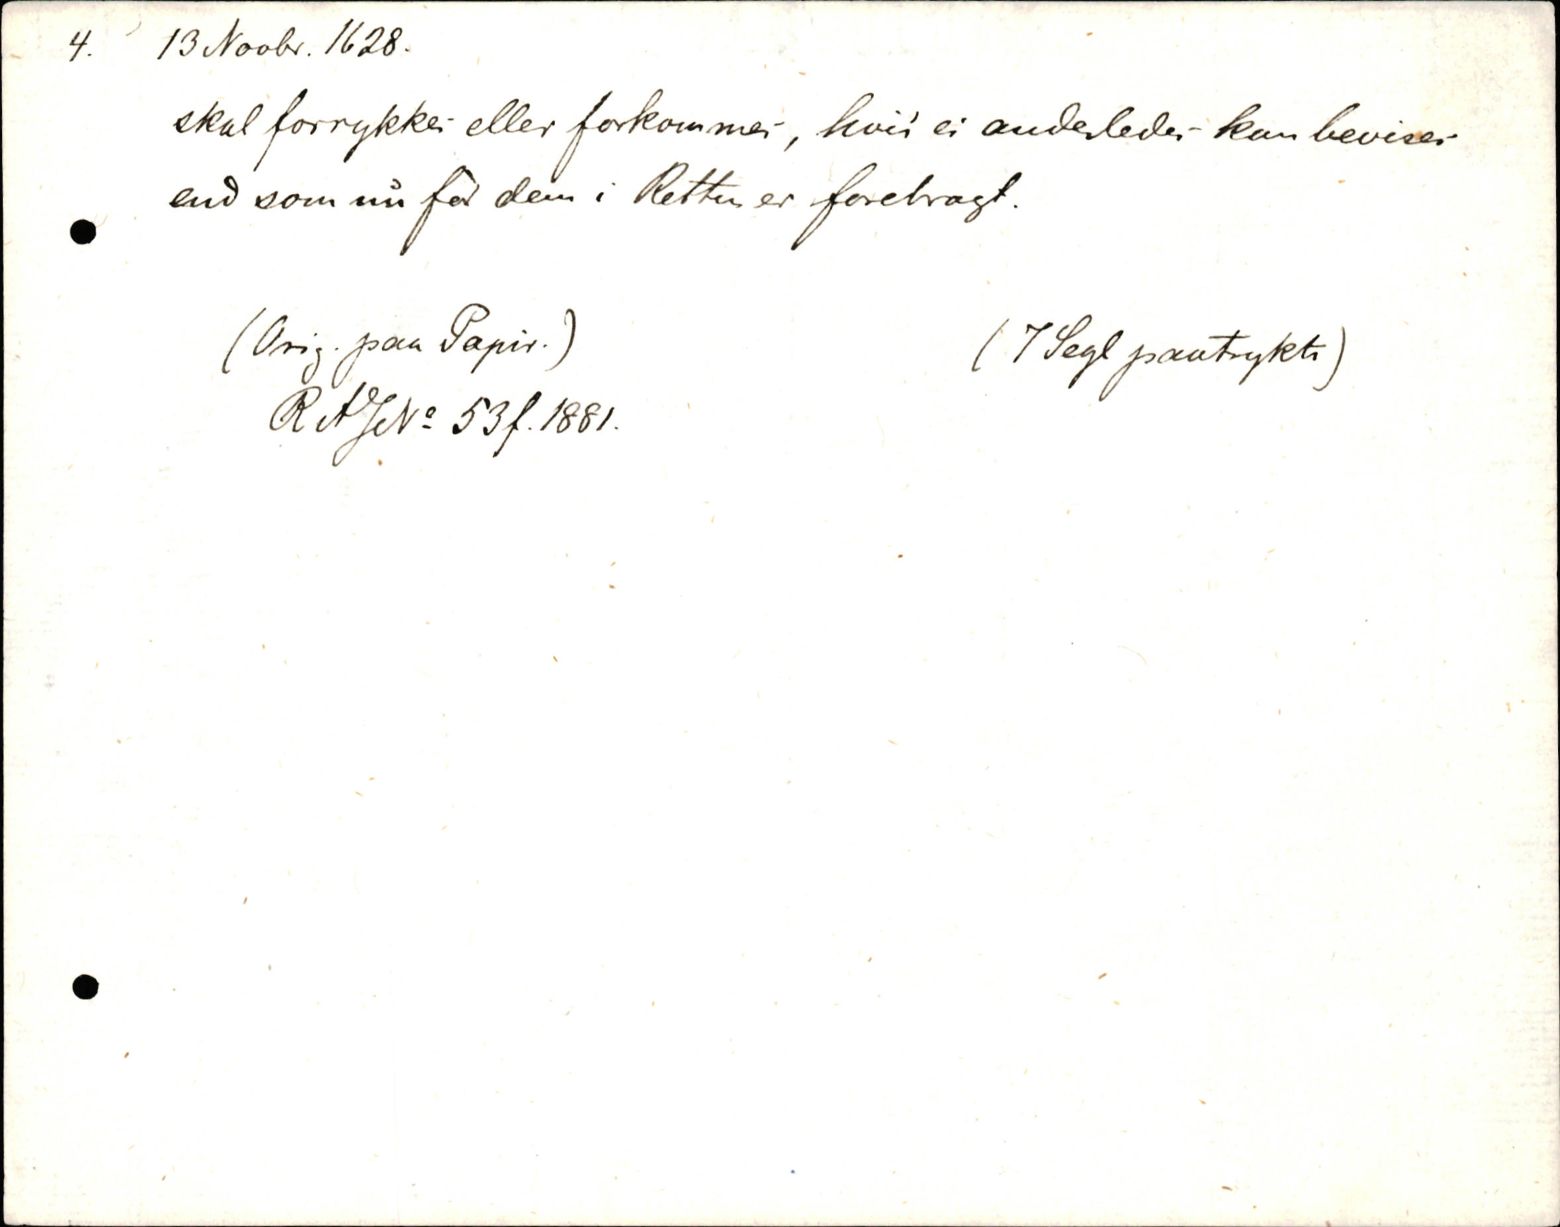 4. 13 Novbr. 1628.
skal forrykkes eller forkommes, hvis ei anderledes kan bevises
end som nu for dem i Retten er foretragt.
(Orig. paa Papir.)
(7 Segl paatrykte)
RA JNº 53 f. 1881.